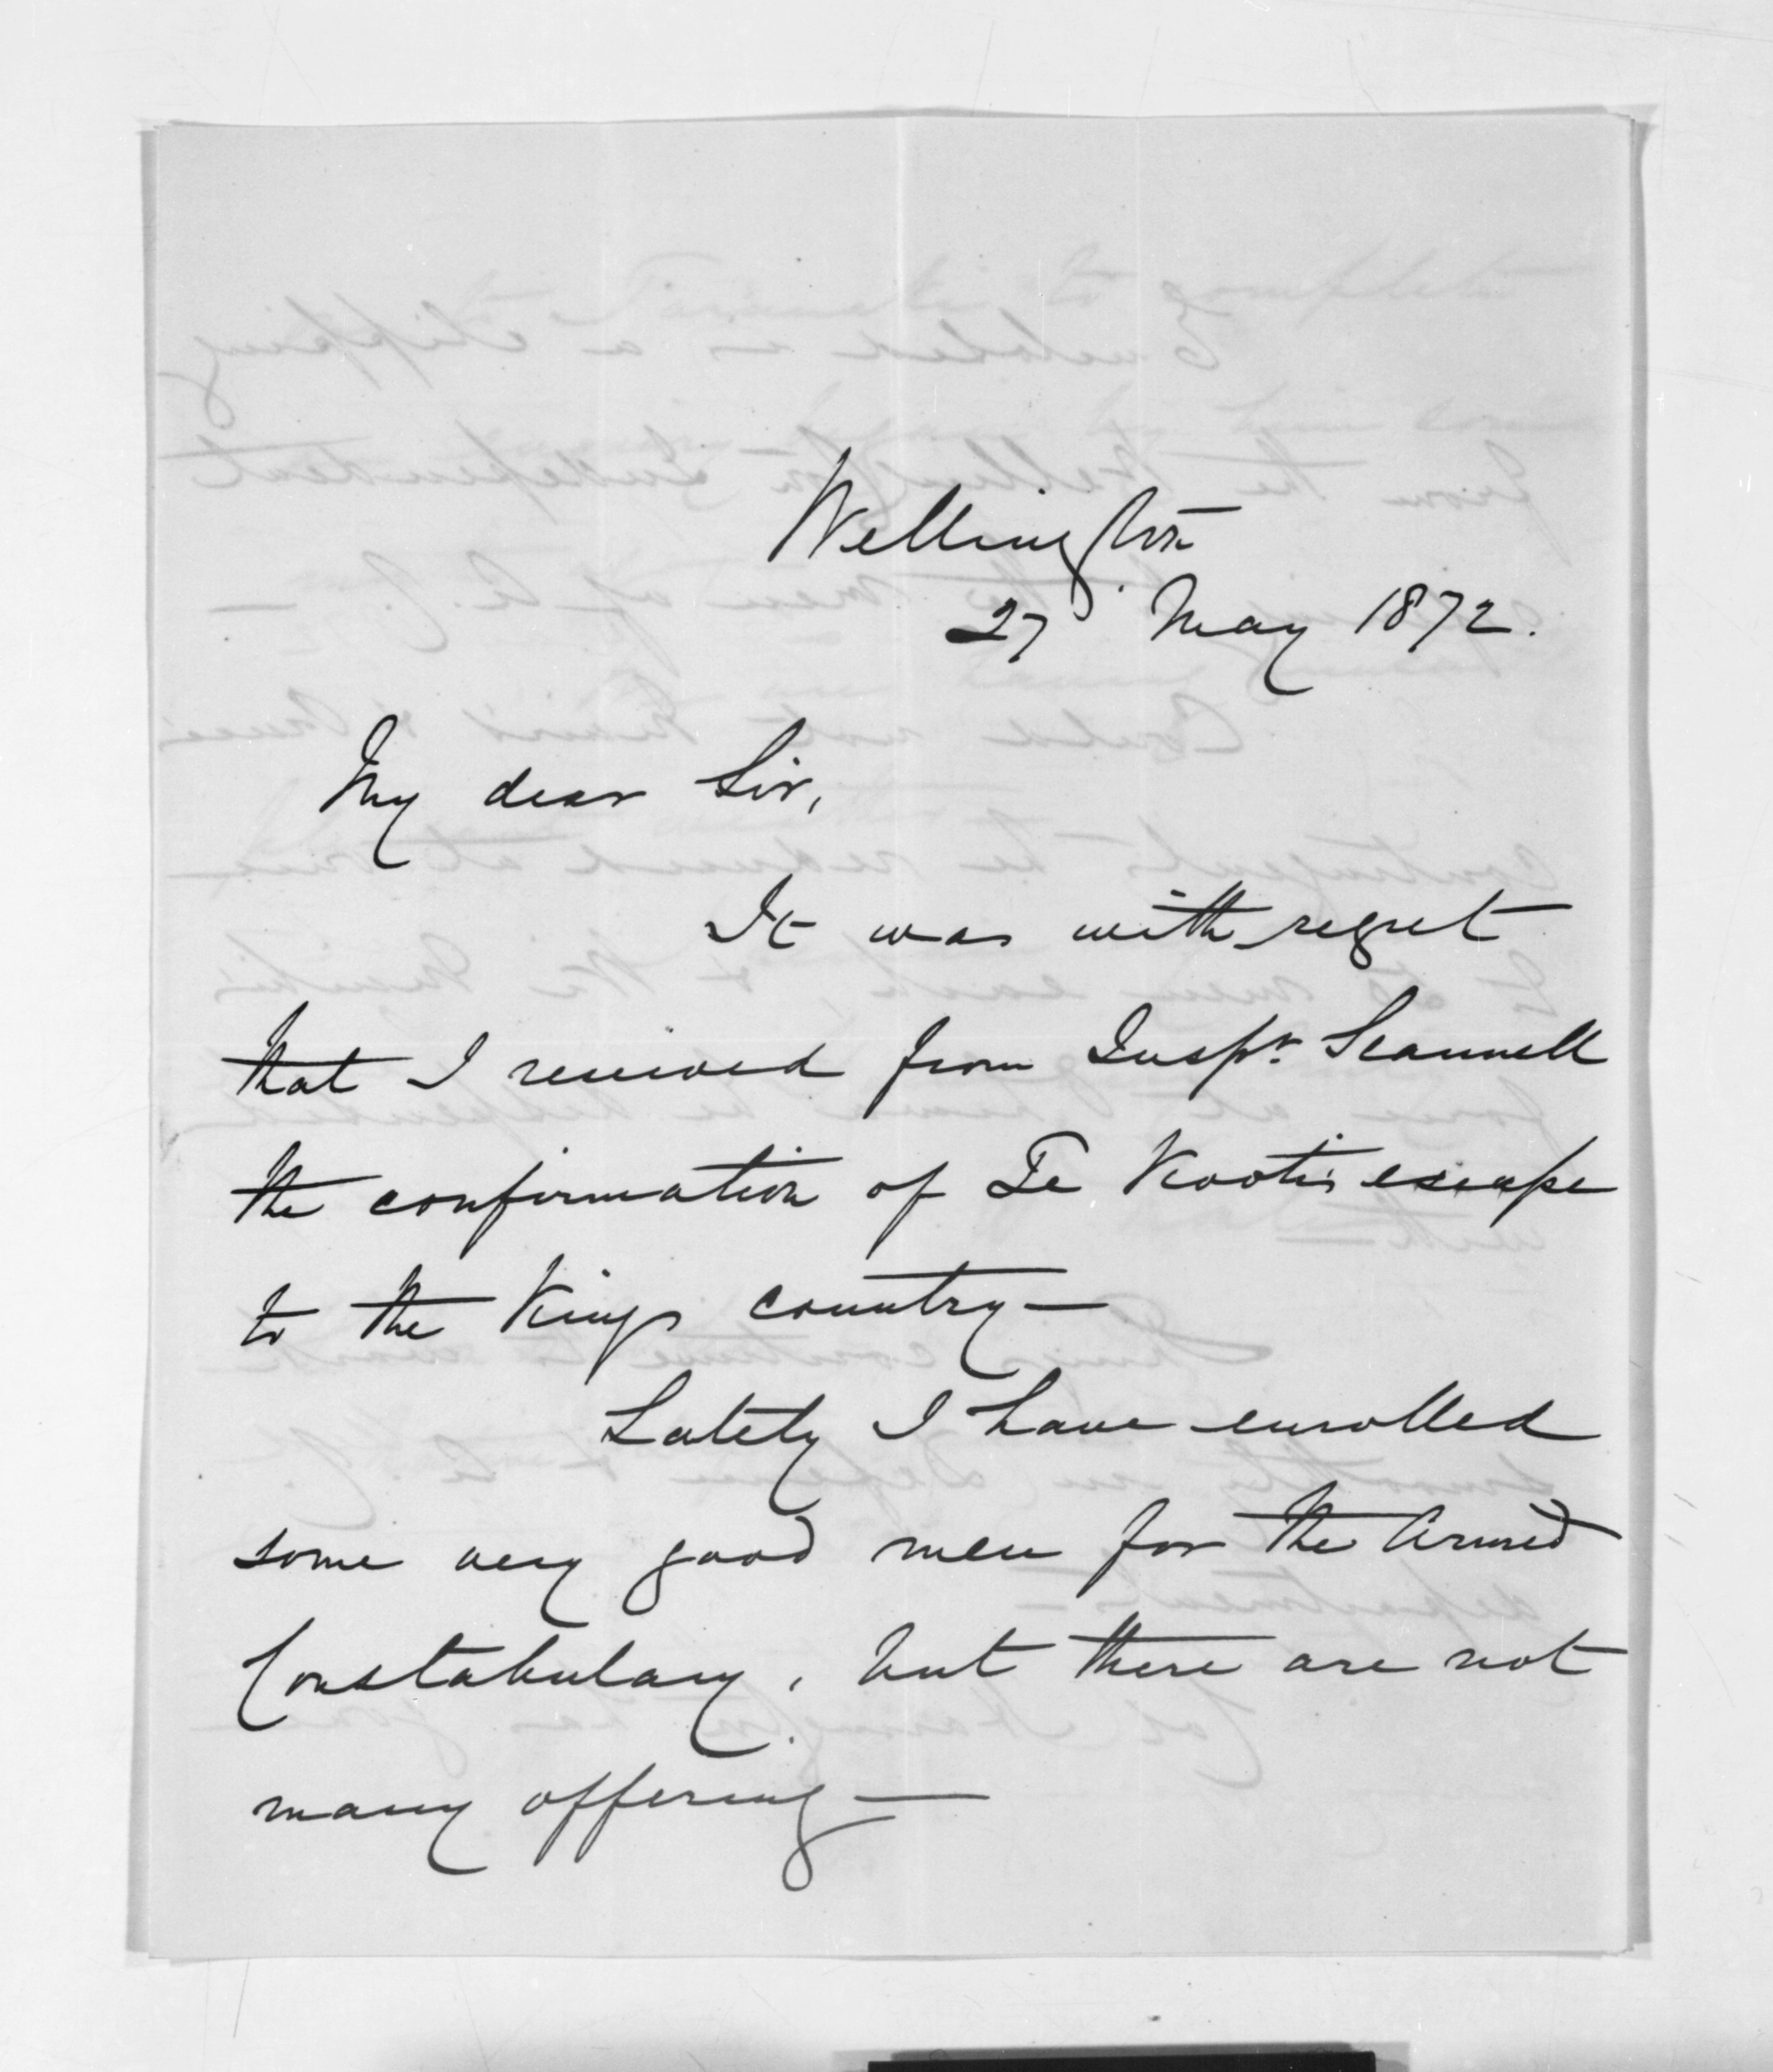 Wellington
27 May 1872.
My dear Sir,
It was with regret
that I received from Inspr. Scannell
the confirmation of Te Kooti's escape
to the Kings country —
Lately I have enrolled
some very good men for the Armed
Constabulary, but there are not
many offering —